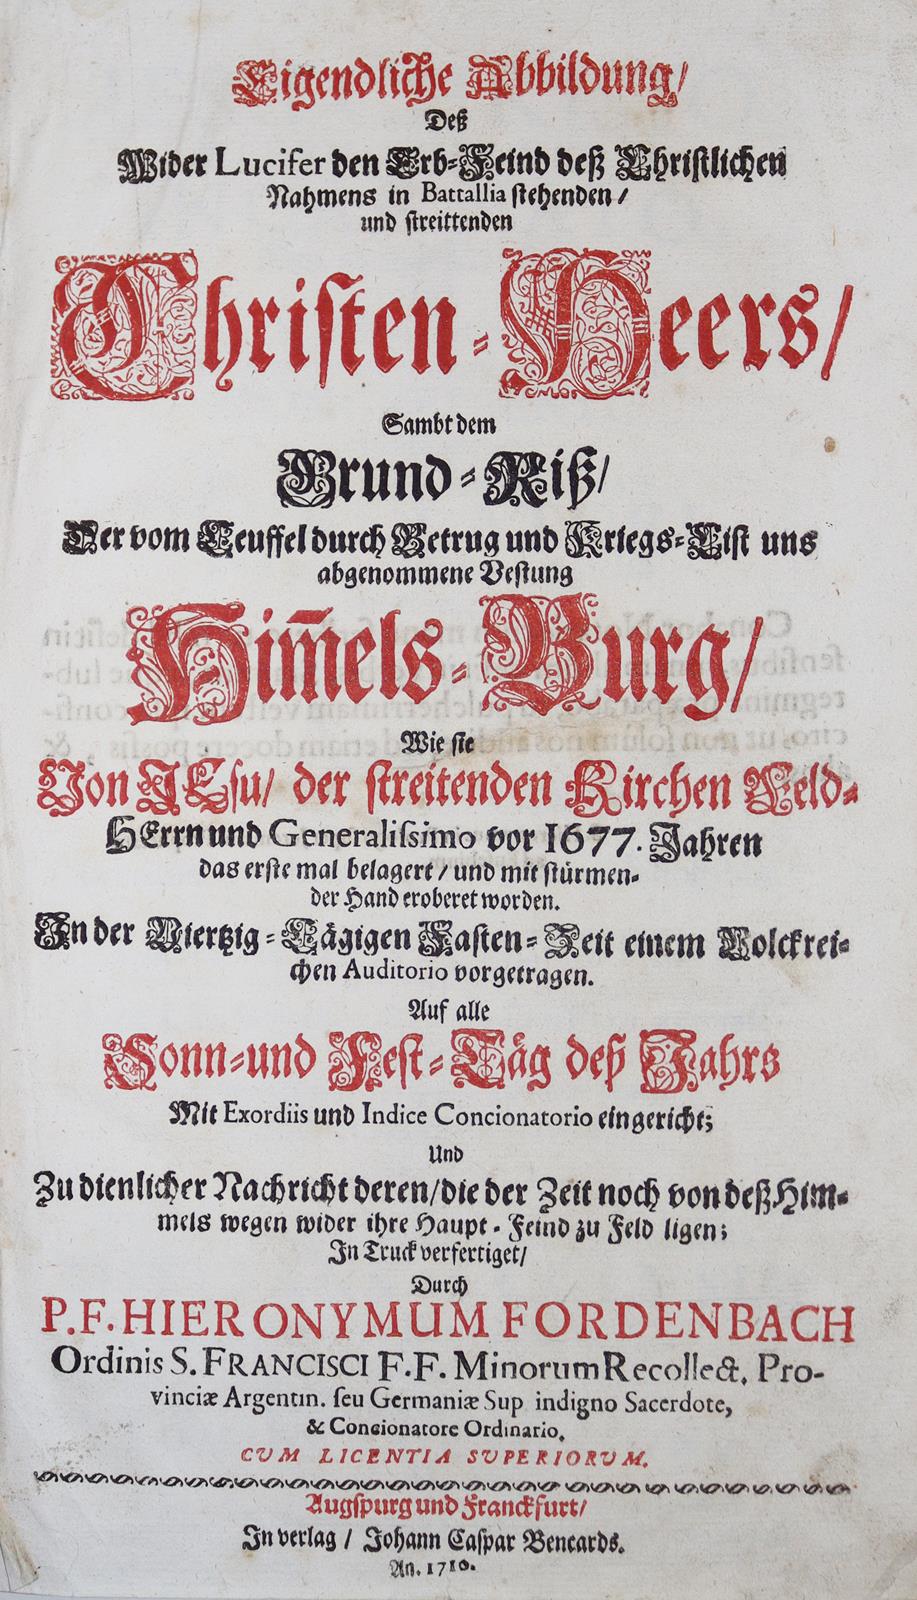 Eigendliche Abbildung/
Deß
Wider Lucifer den Erb-Feind deß Christlichen
Nahmens in Battallia stehenden/
und streittenden
Christen-Heers/
Sambt dem
Grund-Riß/
Der vom Teuffel durch Betrug und Kriegs-List uns
abgenommene Vestung
Him̅els-Burg/
Wie sie
Von JEsu/ der streitenden Kirchen Feld-
HErrn und Generalissimo vor 1677. Jahren
das erste mal belagert/ und mit stürmen-
der Hand eroberet worden.
In der Viertzig-Tägigen Fasten-Zeit einem Volckrei-
chen Auditorio vorgetragen.
Auf alle
Sonn-und Fest-Täg deß Jahrs
Mit Exordiis und Indice Concionatorio eingericht;
Und
Zu dienlicher Nachricht deren/die der Zeit noch von deß Him-
mels wegen wider ihre Haupt-Feind zu Feld ligen;
In Truck verfertiget/
Durch
P.F. HIERONYMUM FORDENBACH
Ordinis S. FRANCISCI F.F. Minorum Recollect. Pro-
vinciæ Argentin. seu Germaniæ Sup indigno Sacerdote,
& Concionatore Ordinario.
CUM LICENTIA SUPERIORUM.
Augspurg und Franckfurt/
In verlag / Johann Caspar Bencards.
An. 1710.